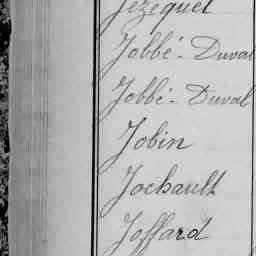 Jezequel
Jobbé-Duval
Jobbé-Duval
Jobin
Jochault
Joffard